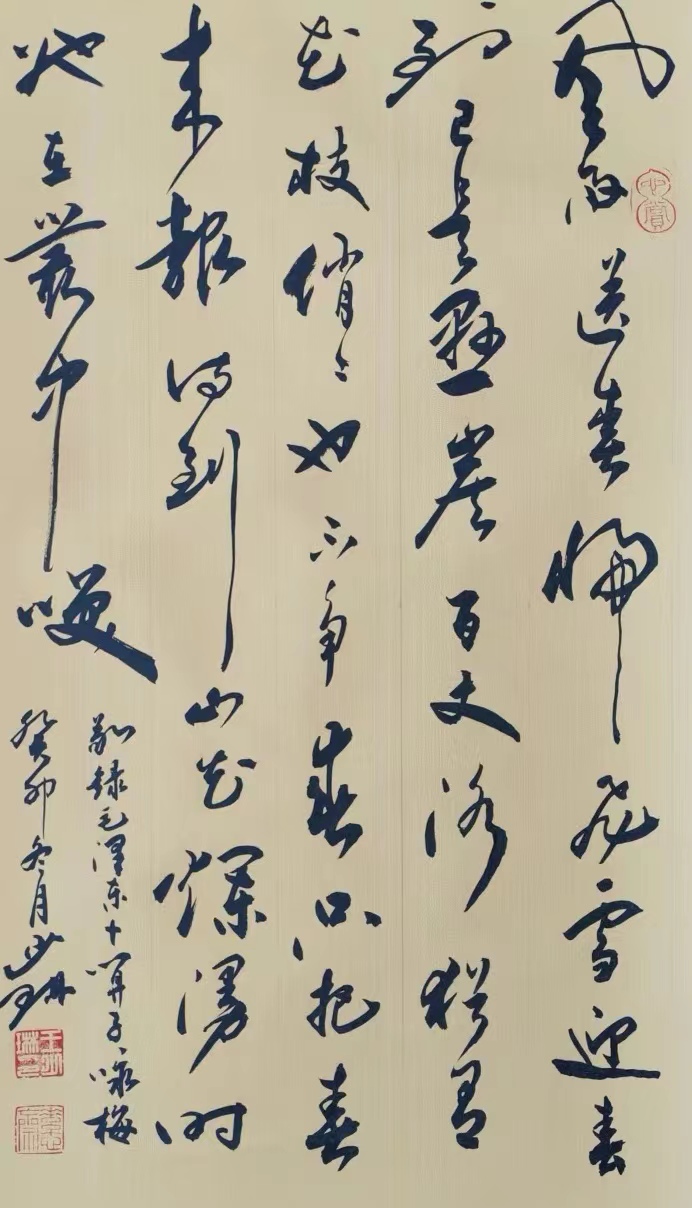 風雨送春歸飛雪迎春
到已是懸崖百丈冰猶有
花枝俏々也不争春只把春
来報待到山花爛漫时
她在叢中笑
敬録毛澤东卜算子咏梅
癸卯冬月少琳